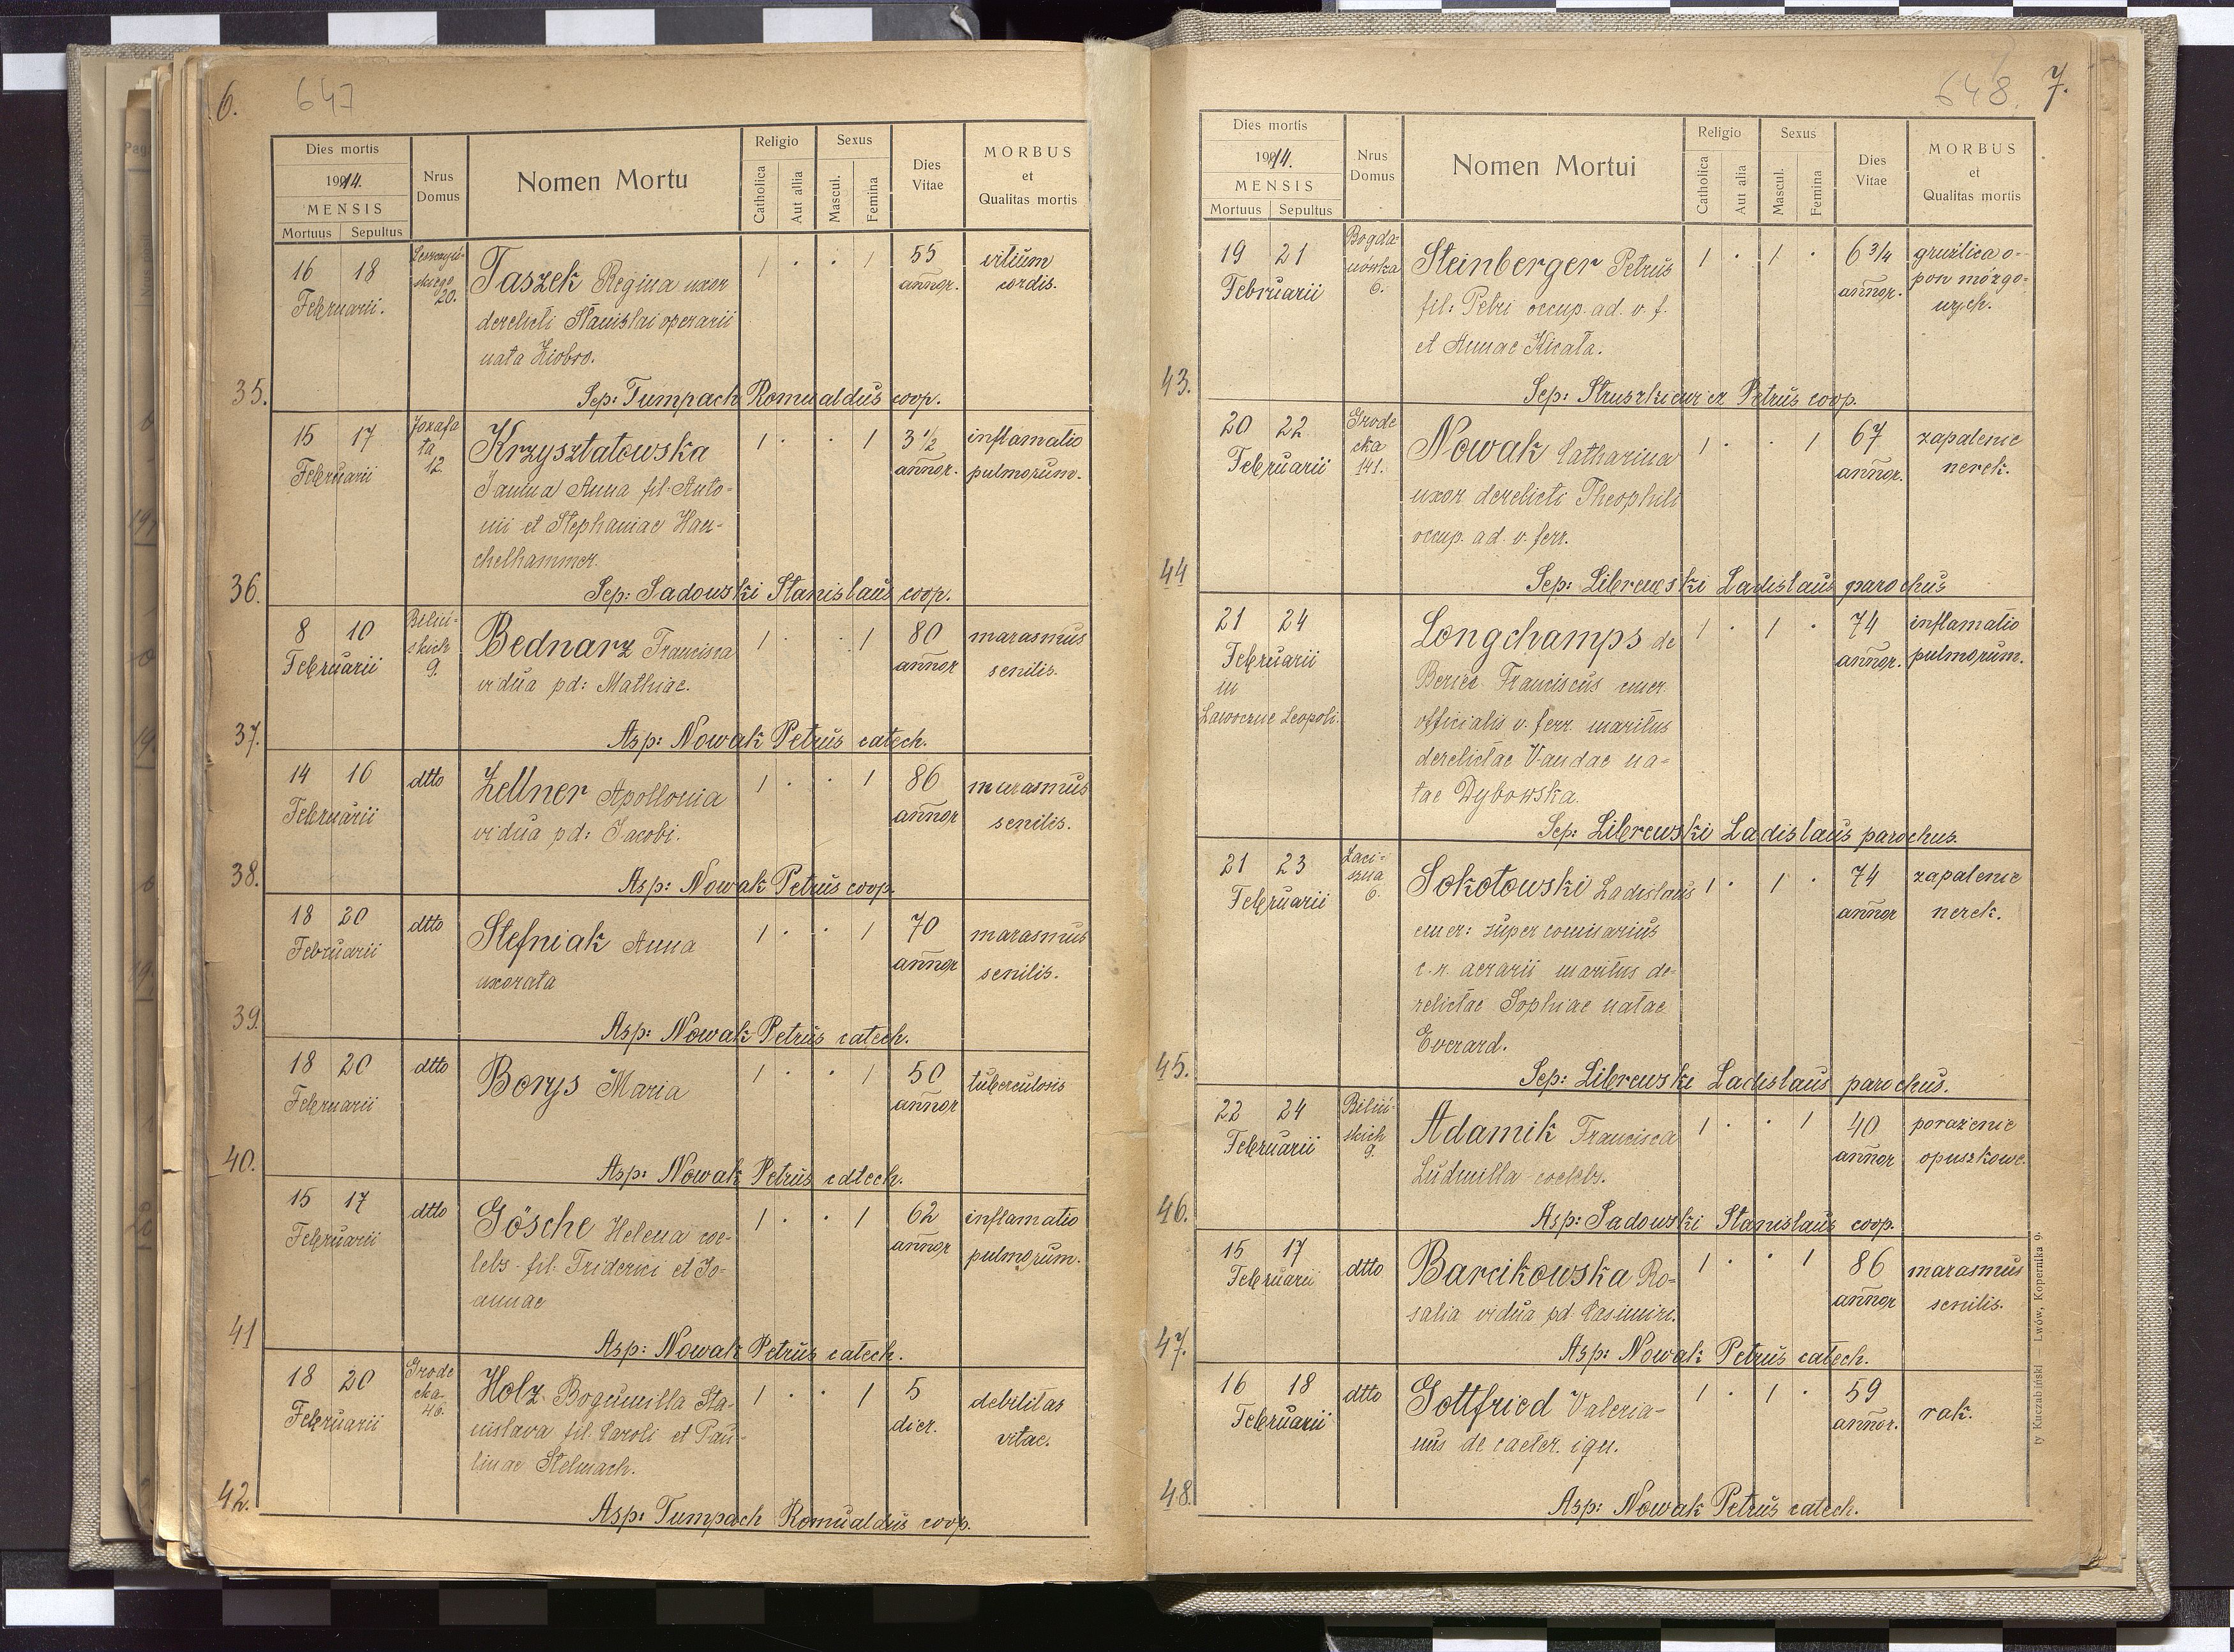 6.
647
Dies mortis
1914.
MENSIS
Mortuus Sepultus
Nrus Domus
Nomen Mortu
Religio
Catholica
Aut allia
Sexus
Mascul.
Femina
Dies Vitae
MORBUS
et
Qualitas mortis
35.
16 18
Februarii.
20.
Taszek Regina uxor
derelicti Stanislai operarii
nata Ziobro.
1 . . 1
55
annor.
vitium
cordis.
Sep: Tumpach Romualdus coop.
36.
15 17
Februarii
Jozafa
ta
12
Krzyształowska
Janina Anna fil. Anto-
nii et Stephaniae Han-
chelhammer.
1 . . 1
3 1/2
annor.
inflamatio
pulmorum.
Sep: Sadowski Stanislaus coop.
37.
8 10
Februarii
Biliń-
skich
9.
Bednarz Francisca
vidua pd: Mathiae.
1 . . 1
80
annor
marasmus
senilis.
Asp: Nowak Petrus catech.
38.
14 16
Februarii
dtto
Zellner Apollonia
vidua pd: Jacobi.
1 . . 1
86
annor
marasmus
senilis.
Asp: Nowak Petrus coop.
39.
18 20
Februarii
dtto
Stefniak Anna
uxorata
1 . . 1
70
annor
marasmus
senilis.
Asp: Nowak Petrus catech.
40.
18 20
Februarii
dtto
Borys Maria
1 . . 1
50
annor
tuberculosis
Asp: Nowak Petrus catech.
41
15 17
Februarii
dtto
Gösche Helena coe-
lebs fil. Friderici et Jo-
annae
1 . . 1
62
annor
inflamatio
pulmorum.
Asp: Nowak Petrus catech.
42.
18 20
Februarii
Grode
cka
46.
Holz Bogumilla Sta-
nislava fil. Caroli et Pau-
linae Stelmach.
1 . . 1
5
dier.
debilitas
vitae.
Asp: Tumpach Romualdus coop.
648.
7.
Dies mortis
1914.
MENSIS
Mortuus Sepultus
Nrus Domus
Nomen Mortui
Religio
Catholica
Aut alia
Sexus
Mascul.
Femina
Dies Vitae
MORBUS
et
Qualitas mortis
43.
19 21
Februarii
Bogda-
nówka
6.
Steinberger Petrus
fil: Petri occup. ad. v. f.
et Annae Kicała.
1 . 1 .
6 3/4
annor.
gruźlica o-
pon mózgo-
wych.
Sep: Struszkiewicz Petrus coop.
44
20 22
Februarii
Grode
cka
141.
Nowak Catharina
uxor derelicti Theophili
occup. ad. v. ferr.
1 . . 1
67
annor.
zapalenie
nerek.
Sep: Librewski Ladislaus parochus
21 24
Februarii
in
Ławoczne Leopoli.
Longchamps de
Berier Franciscus emer.
officialis v. ferr. maritus
derelictae Vandae na-
tae Dybowska.
1 . 1 .
74
annor.
inflamatio
pulmorum.
Sep: Librewski Ladislaus parochus.
45.
21 23
Februarii
Zaci-
szna
6.
Sokołowski Ladislaus
emer: super comisarius
c. r. aerarii maritus de-
relictae Sophiae natae
Everard.
1 . 1 .
74
annor
zapalenie
nerek.
Sep: Librewski Ladislaus parochus.
46.
22 24
Februarii
Biliń-
skich
9.
Adamik Francisca
Ludmilla coelebs.
1 . . 1
40
annor
porażenie
opuszkowe.
Asp: Sadowski Stanislaus coop.
47.
15 17
Februarii
dtto
Barcikowska Ro-
salia vidua pd. Casimiri.
1 . . 1
86
annor
marasmus
senilis.
Asp: Nowak Petrus catech.
48.
16 18
Februarii
dtto
Gottfried Valeria-
nus de caeter. ign.
1 . 1 .
59
annor.
rak.
Asp: Nowak Petrus catech.
ty Kuczabiński — Lwów, Kopernika 9.